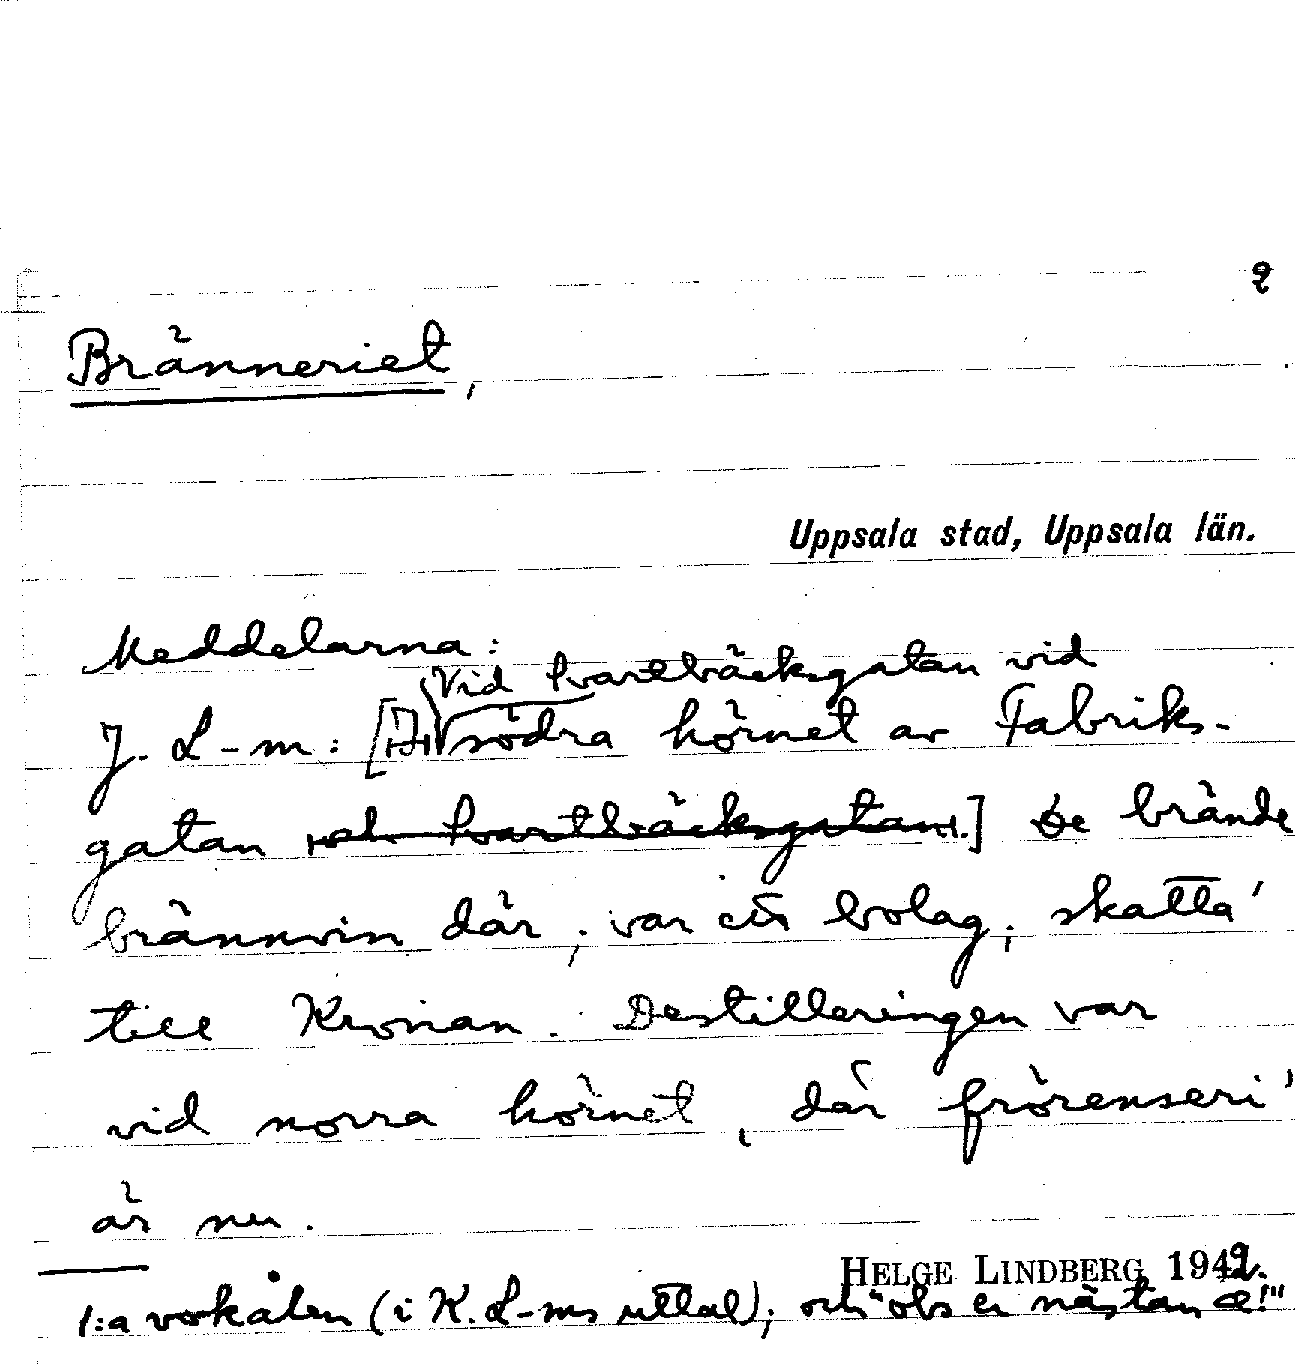 2
Bränneriet,
Uppsala stad, Uppsala län.
Meddelarna:
Vid Svartbäcksgatan vid
J. L-m: [I södra hörnet av Fabriks-
gatan och Svartbäcksgatan.] De brände
brännvin där; var ett bolag; skatta'
till Kronan. Destilleringen var
vid norra hörnet, där frörenseri'
är nu.
HELGE LINDBERG 1942.
1:a vokalen (i K. L-ms uttal); och "obs e nästan æ!"